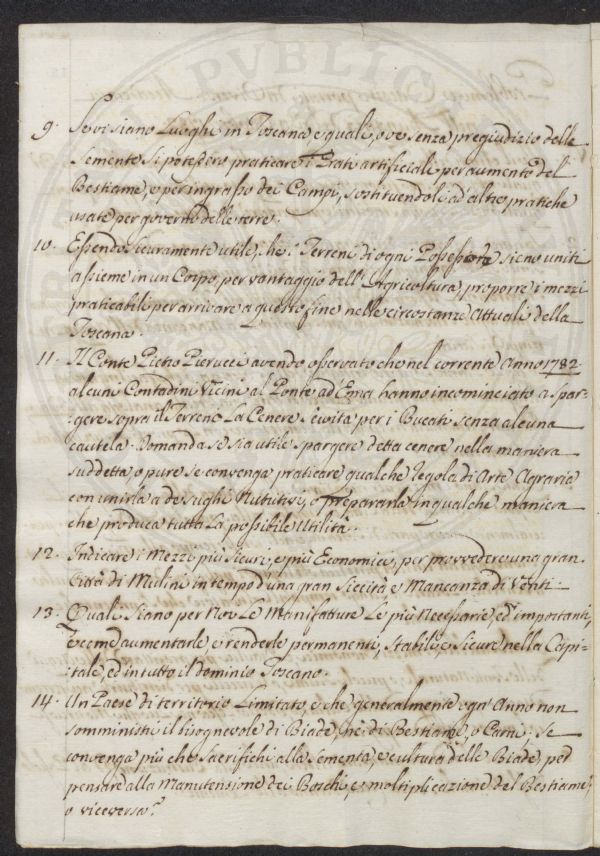 PVBLIC
9. Se vi siano Luoghi in Toscana e quali, ove senza pregiudizio delle
Semente si potessero praticare i Prati artificiali per aumento del
Bestiame, e per ingrasso dei Campi, sostituendoli ad altre pratiche
usate per governo delle terre.
10. Essendo sicuramente utile, che i Terreni di ogni Possessore sieno uniti
assieme in un Corpo per vantaggio dell'Agricoltura, proporre i mezzi
praticabili per arrivare a questo fine nelle circostanze Attuali della
Toscana.
11. Il Conte Pietro Pierucci avendo osservato che nel corrente Anno 1782
alcuni Contadini Vicini al Ponte ad Ema hanno incominciato a spar=
gere sopra il Terreno La Cenere servita per i Bucati senza alcuna
cautela. Domanda se sia utile spargere detta cenere nella maniera
suddetta, o pure se convenga praticare qualche regola di Arte Agraria
con unirla a de sughi Nutritivi, o prepararla in qualche maniera
che produca tutta La possibile Utilità.
12. Indicare i Mezzi più sicuri, e più Economici, per provvedere una gran
Città di Mulini in tempo d'una gran Siccità e Mancanza di Venti.
13. Quali siano per Noi Le Manifatture Le più Necessarie, ed importanti,
e come aumentarle e renderle permanenti, Stabili, e Sicure nella Capi=
tale, ed in tutto il dominio Toscano.
14. Un Paese di territorio Limitato, e che generalmente ogn'Anno non
somministri il bisognevole di Biade, nè di Bestiame, o Carni; se
convenga più che sacrifichi alla Sementa, e cultura delle Biade, o
pensare alla Manutensione dei Boschi, e moltiplicazione del Bestiame,
o viceversa?